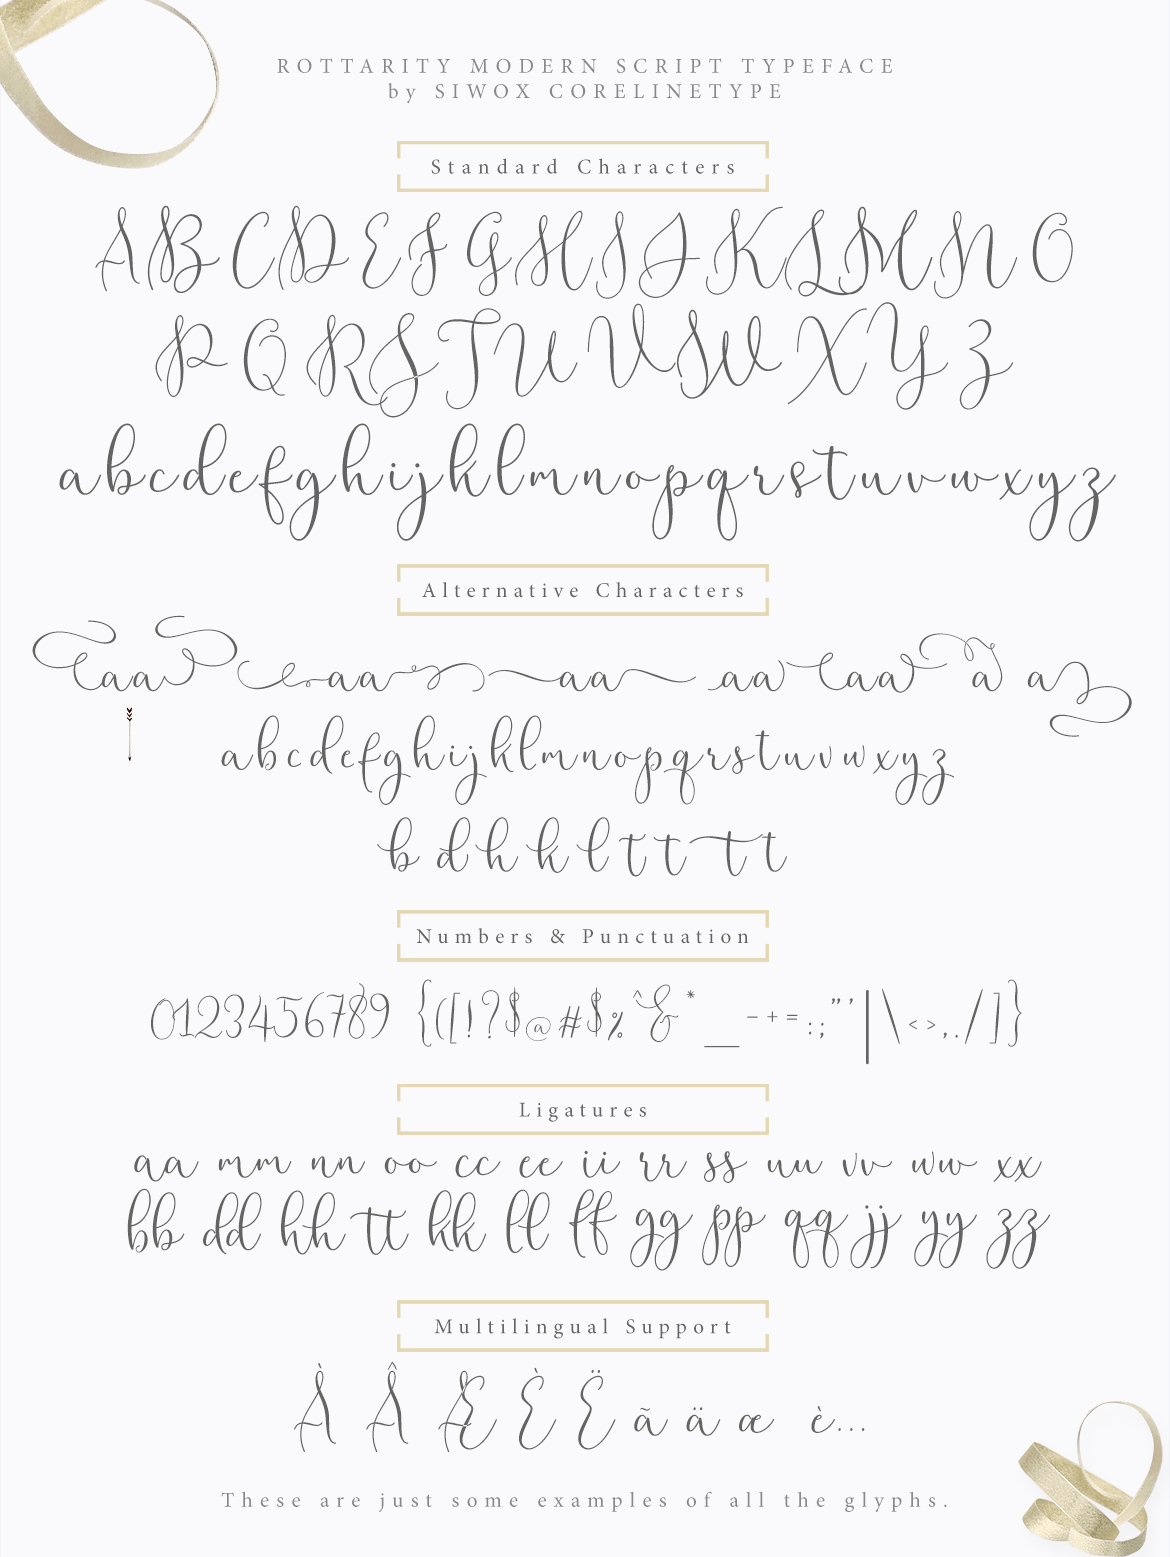 ROTTARITY MODERN SCRIPT TYPEFACE
by SIWOX CORELINETYPE
Standard Characters
A B C D E F G H I J K L M N O
P Q R S T U V W X Y Z
a b c d e f g h i j k l m n o p q r s t u v w x y z
Alternative Characters
aa aa aa aa aa a a
a b c d e f g h i j k l m n o p q r s t u v w x y z
b d h k l t t tt t
Numbers & Punctuation
0123456789 {([!?$@#$%^&*_-+=:;"'|\<>,./]}
Ligatures
aa mm nn oo cc ee ii rr ss uu vv ww xx
bb dd hh tt kk ll ff gg pp qq jj yy zz
Multilingual Support
À Â Æ È Ë ã ä æ è...
These are just some examples of all the glyphs.